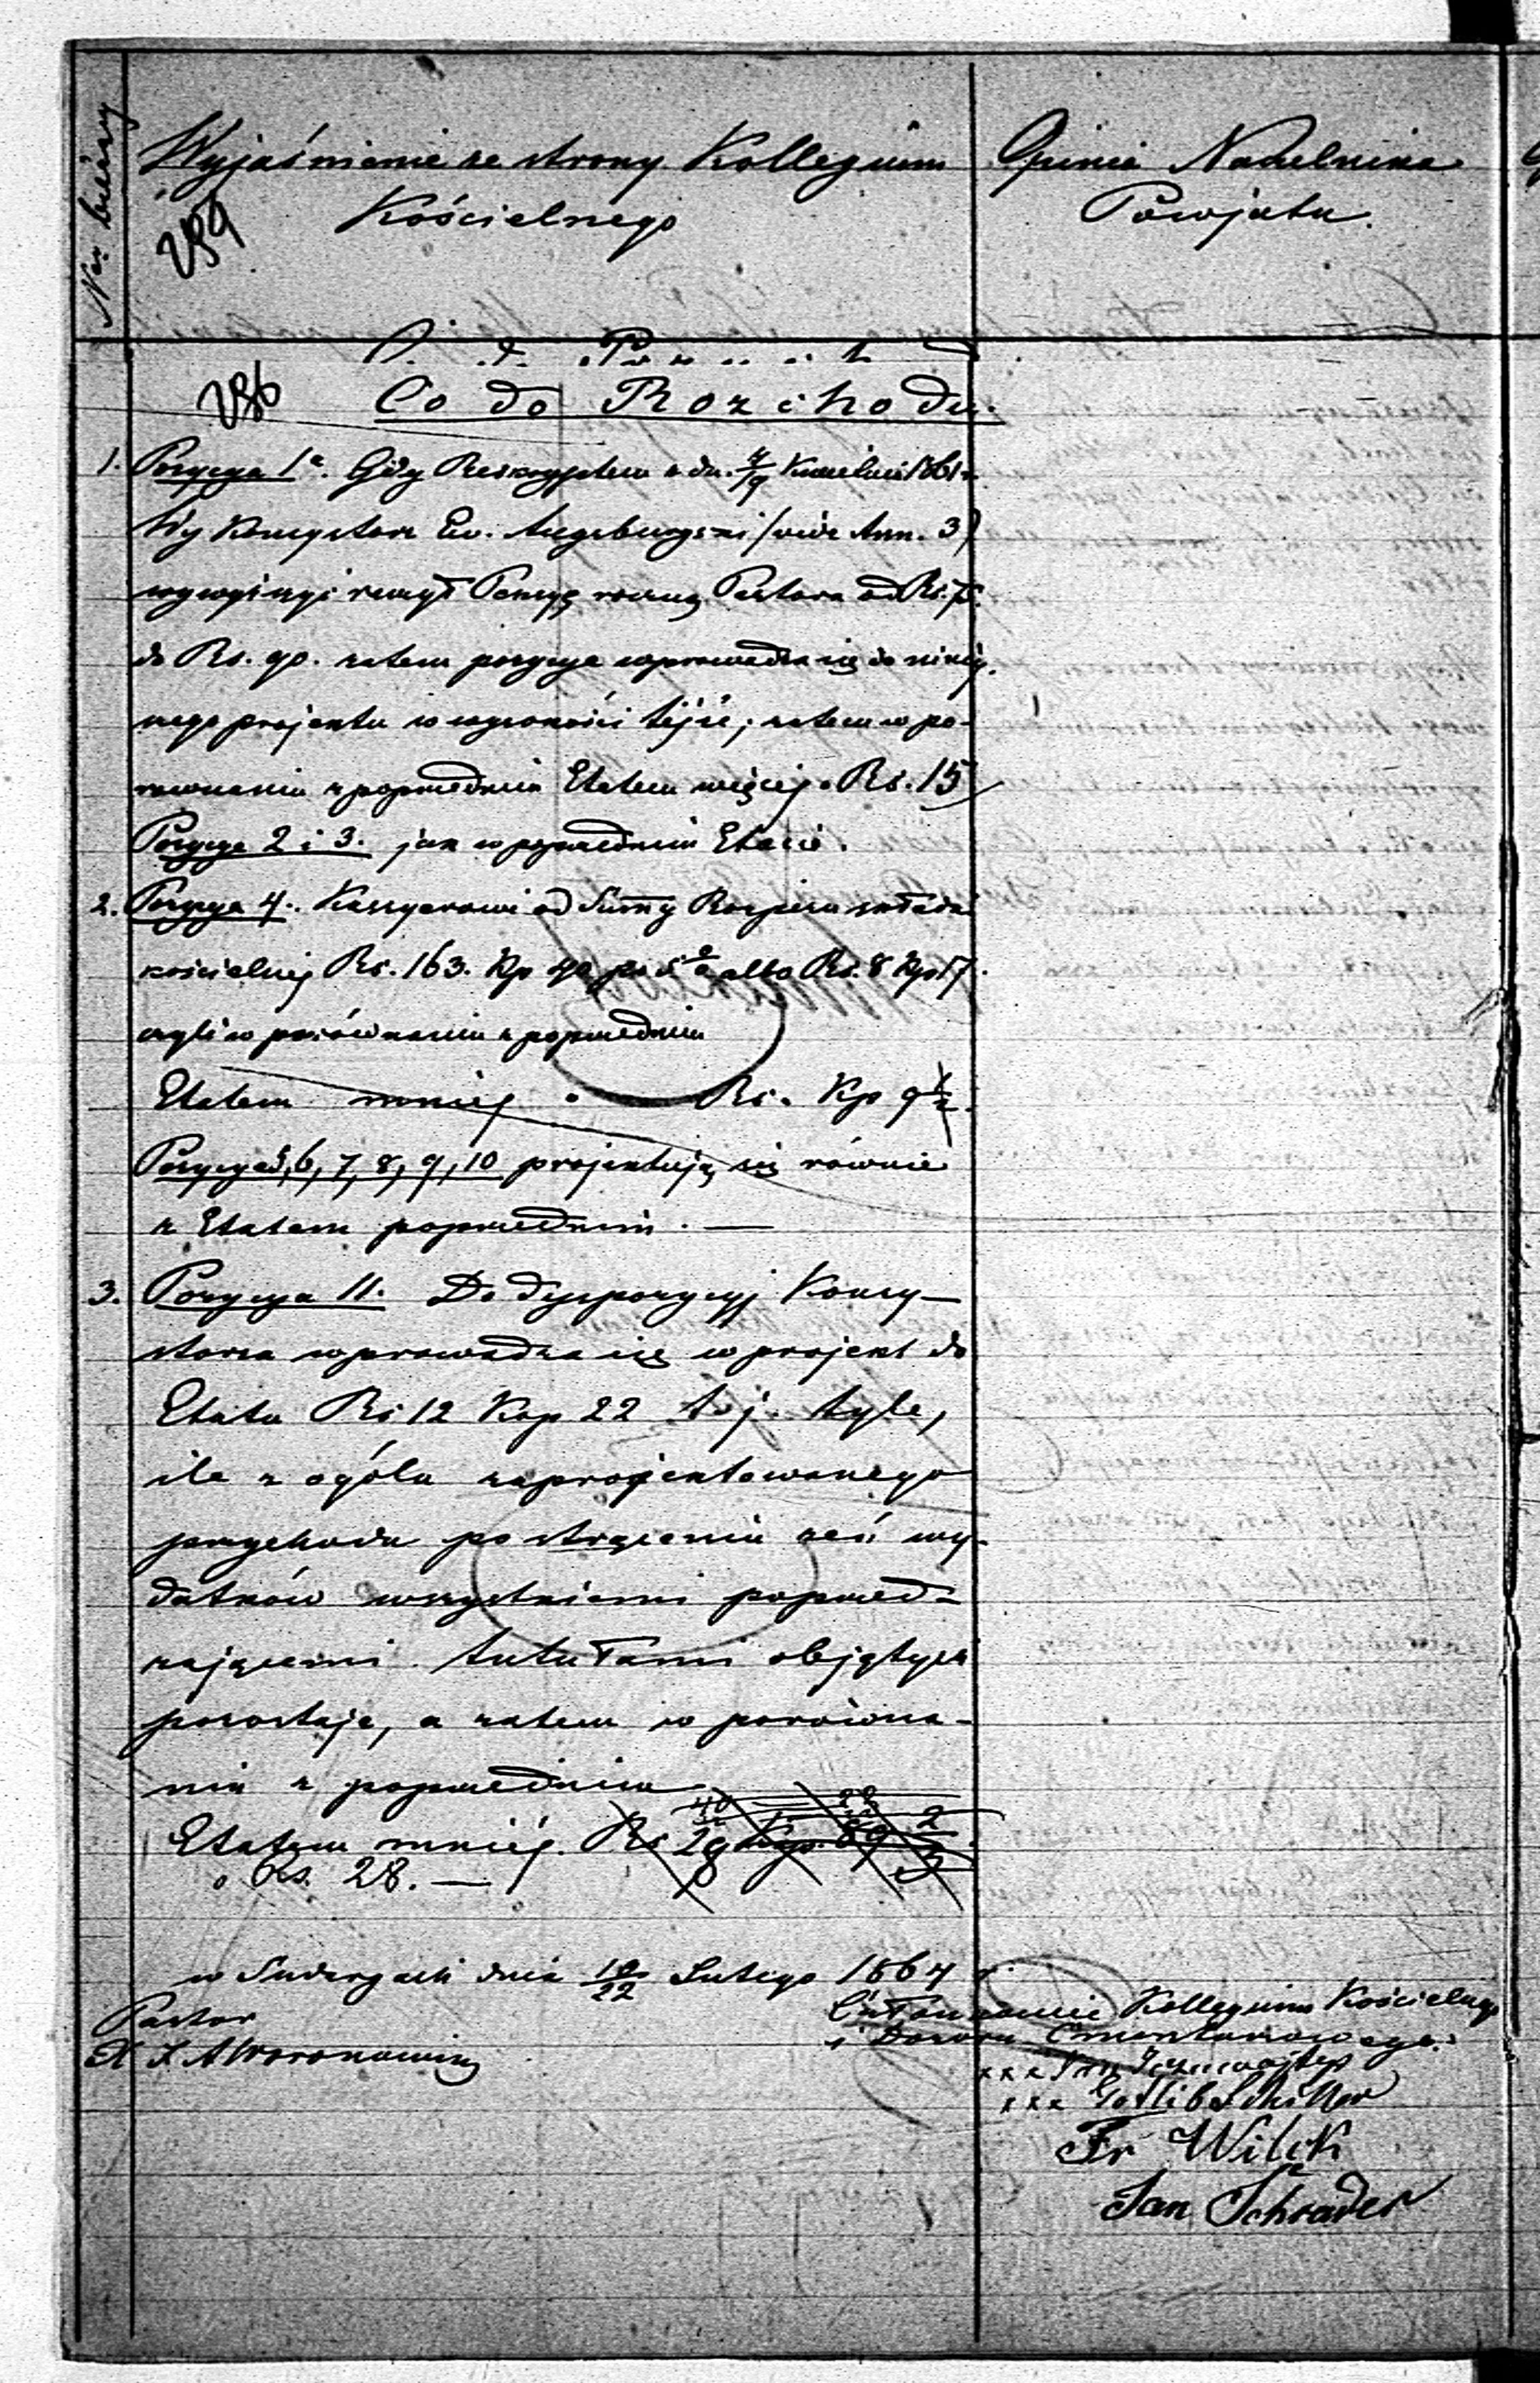 Nr bieżący
Wyjaśnienie ze strony Kollegium
Kościelnego
Opinia Naczelnika
Powjatu.
259
256
Co do Rozchodu.
1. Pozycya 1a. Gdy Reskryptem z dn. Kwietnia 1861 r.
Wy Konsystorz Ew. Augsburgski (vide Ann. 3)
raczył Pensyę roczną Pastora od Rs. 75.
do Rs. 90. zatem pozycya wprowadza się do niniej.
szego projektu w wysokości tejże; zatem w po-
rownaniu z poprzednim Etatem więcej o Rs. 15
Pozycye 2 i 3. jak w poprzednim Etacie.
2. Pozycya 4. Kassyerowi od Summy Rozpisu składki
kościelnej Rs. 163. Kp 40 po 5 % albo Rs. 8 Kp 17.
czyli w porównaniu z poprzednim
Etatem mniej o Rs. Kp 9 1/2.
Pozycye 5, 6, 7, 8, 9, 10 projektują się równie
z Etatem poprzednim. —
3. Pozycya 11. Do dyspozycyj Konsy-
storza wprowadza się w projekt do
Etatu Rs 12 Kop 22 t. j. tyle,
ile z ogółu zaprojektowanego
przychodu po strąceniu zeń wy-
datków wszystkiemi poprzed-
zającemi tytułami objętych
pozostaje, a zatem w porówna-
niu z poprzednim
Etatem mniej. Rs 29 Kop. 89
o Rs. 28. —
w Sudargach dnia 10/22 Lutego 1864 r.
Pastor
X J. A Woronowicz
Członkowie Kollegium Kościelnego
i Dozoru Cmentarnowego:
xxx Jan
xxx Gotlib Schiller
Fr Wilck
Jan Schrader